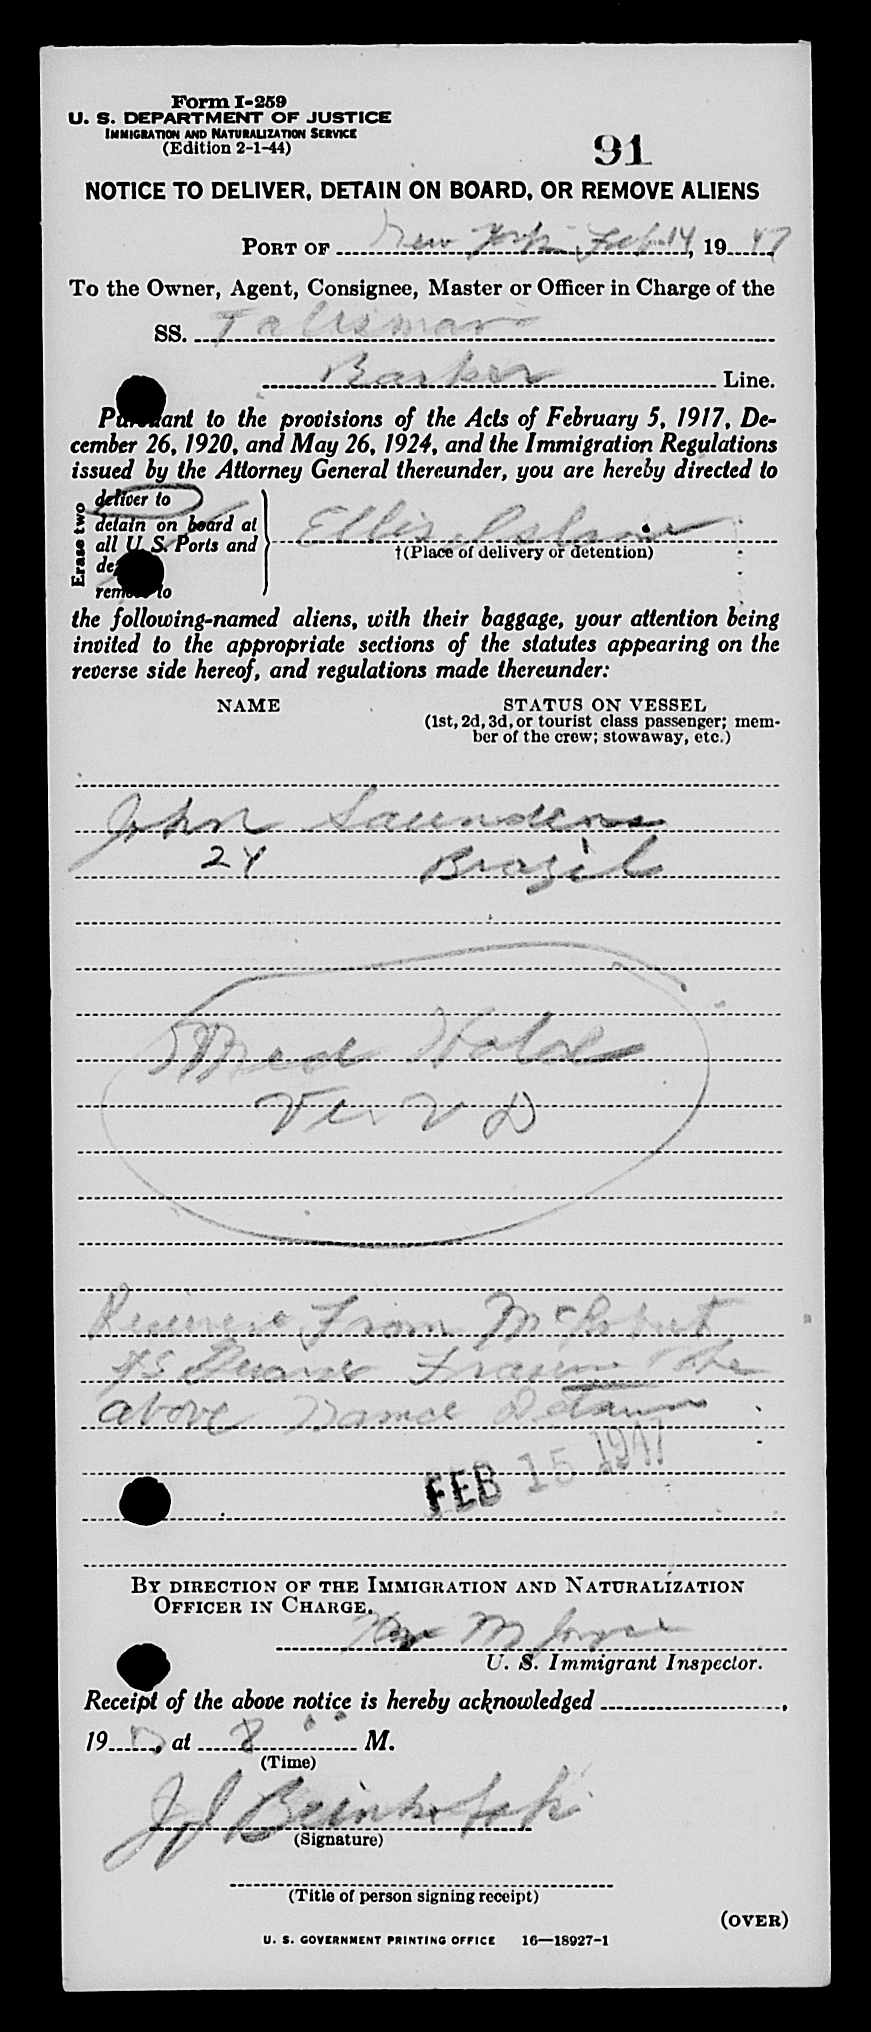 Form I-259
U. S. DEPARTMENT OF JUSTICE
IMMIGRATION AND NATURALIZATION SERVICE
(Edition 2-1-44)
91
NOTICE TO DELIVER, DETAIN ON BOARD, OR REMOVE ALIENS
PORT OF New York Feb 14, 1947
To the Owner, Agent, Consignee, Master or Officer in Charge of the
SS. Talisman
Barber Line.
Pursuant to the provisions of the Acts of February 5, 1917, De-
cember 26, 1920, and May 26, 1924, and the Immigration Regulations
issued by the Attorney General thereunder, you are hereby directed to
Erase two
deliver to
detain on board at
all U. S. Ports and
remove to
Ellis Island
†(Place of delivery or detention)
the following-named aliens, with their baggage, your attention being
invited to the appropriate sections of the statutes appearing on the
reverse side hereof, and regulations made thereunder:
NAME STATUS ON VESSEL
(1st, 2d, 3d, or tourist class passenger; mem-
ber of the crew; stowaway, etc.)
John Saunders
24 Brazil
Med Hold
V D
From
above named
FEB 15 1947
BY DIRECTION OF THE IMMIGRATION AND NATURALIZATION
OFFICER IN CHARGE.
U. S. Immigrant Inspector.
Receipt of the above notice is hereby acknowledged
19 , at 8 M.
(Time)
(Signature)
(Title of person signing receipt)
(OVER)
U. S. GOVERNMENT PRINTING OFFICE 16—18927-1